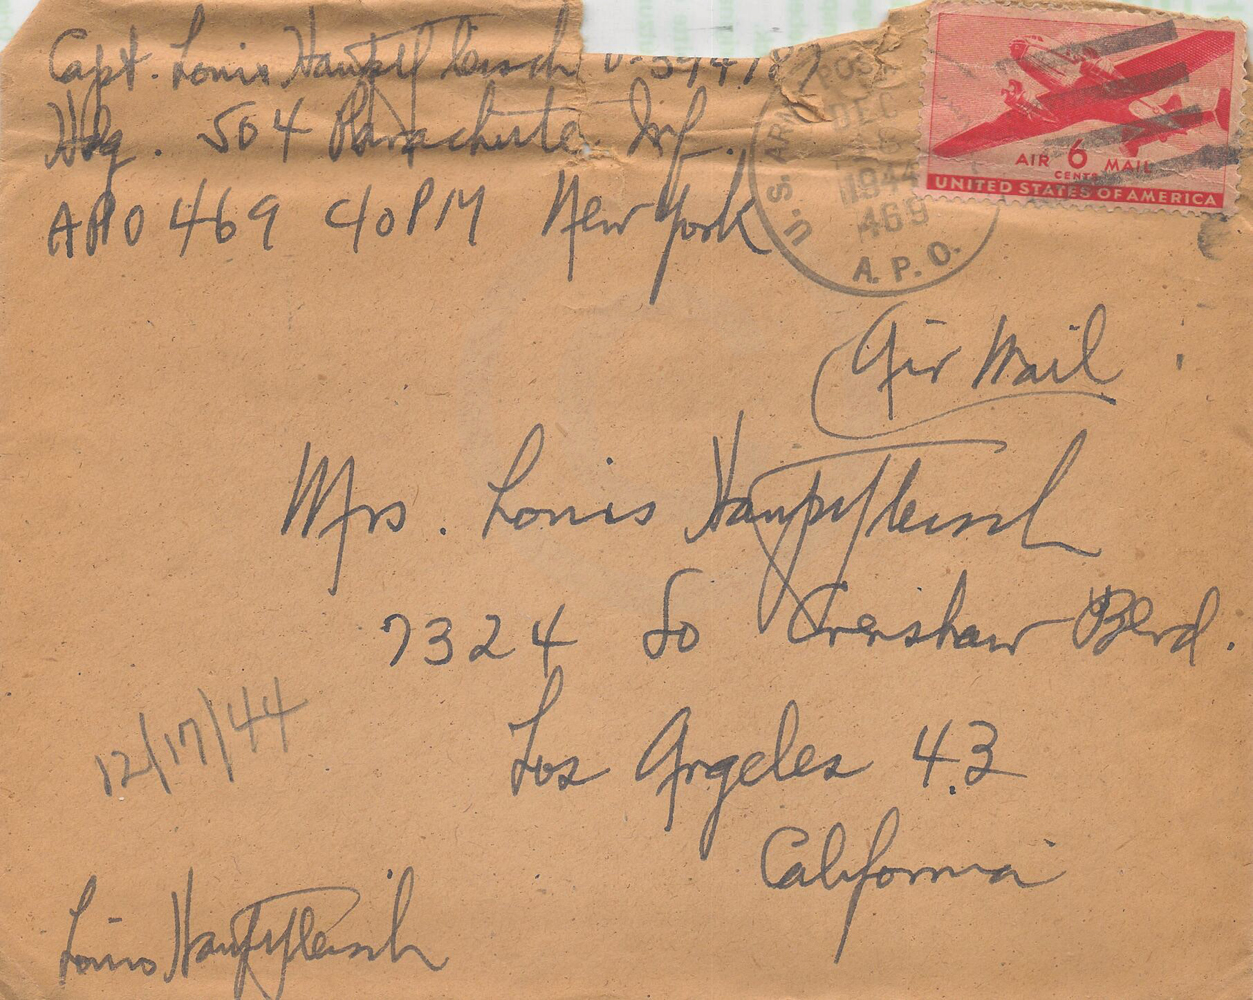 Capt. Louis Hauptfleisch O-394787
Hdq. 504 Parachute Inf.,
APO 469 c/o PM New York
U.S. ARMY POSTAL
DEC
1944
469
A.P.O.
AIR 6 MAIL
CENTS
UNITED STATES OF AMERICA
Air Mail
Mrs. Louis Hauptfleisch
7324 So Crenshaw Blvd.
Los Angeles 43
California
12/17/44
Louis Hauptfleisch